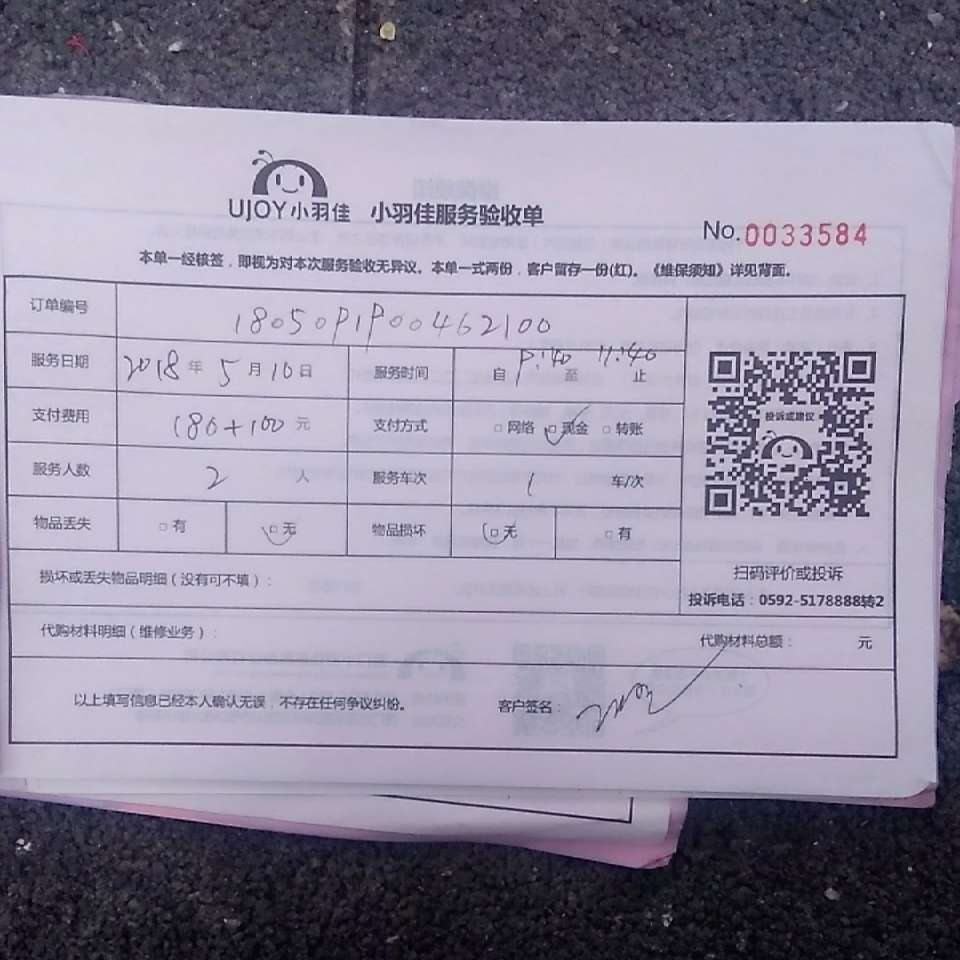 UJOY小羽佳 小羽佳服务验收单
No.0033584
本单一经核签，即视为对本次服务验收无异议。本单一式两份，客户留存一份(红)。《维保须知》详见背面。
订单编号 18050P1P00462100
服务日期 2018年5月10日 服务时间 自 P:40 至 11:40 止
支付费用 180+100元 支付方式 □网络 □现金 □转账
服务人数 2 人 服务车次 1 车/次
物品丢失 □有 □无 物品损坏 □无 □有
投诉或建议
扫码评价或投诉
投诉电话：0592-5178888转2
损坏或丢失物品明细（没有可不填）：
代购材料明细（维修业务）： 代购材料总额： 元
以上填写信息已经本人确认无误，不存在任何争议纠纷。 客户签名：